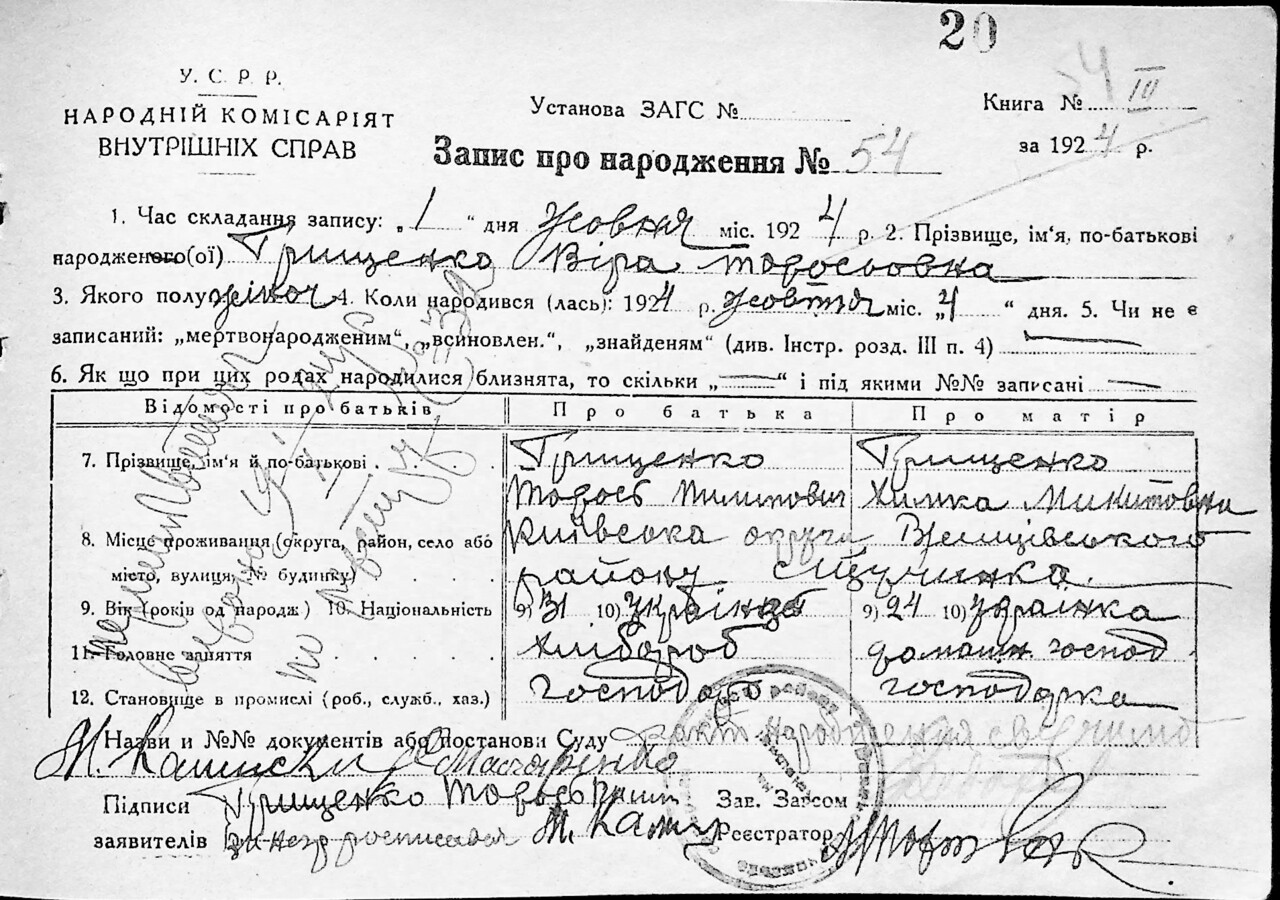 20
У. С. Р. Р.
НАРОДНІЙ КОМІСАРІЯТ
ВНУТРІШНІХ СПРАВ
Установа ЗАГС №
Книга № 54 III
за 1924 р.
Запис про народження № 54
1. Час складання запису: „1“ дня Жовня міс. 1924 р. 2. Прізвище, ім'я, по-батькові
народженого(ої) Грищенко Віра Торосьовна
3. Якого полу жіноч 4. Коли народився (лась): 1924 р. жовтня міс. „4“ дня. 5. Чи не є
записаний: „мертвонародженим“, „всиновлен.“, „знайденям“ (див. Інстр. розд. III п. 4) —
6. Як що при цих родах народилися близнята, то скільки „—“ і під якими №№ записані —
Відомості про батьків Про батька Про матір
7. Прізвище, ім'я й по-батькові Грищенко Грищенко
Торось Пилипович Химка Микитовна
8. Місце проживання (округа, район, село або Київська округа
місто, вулиця, № будинку) району
9. Вік (років од народж.) 10. Національність 9) 31 10) Українец 9) 24 10) Українка
11. Головне заняття Хлібороб домашн господ.
12. Становище в промислі (роб., служб., хаз.) господарь господарка
Назви и №№ документів або постанови Суду факт народження
Підписи Грищенко Торось Зав. Загсом
заявителів росписався Реєстратор